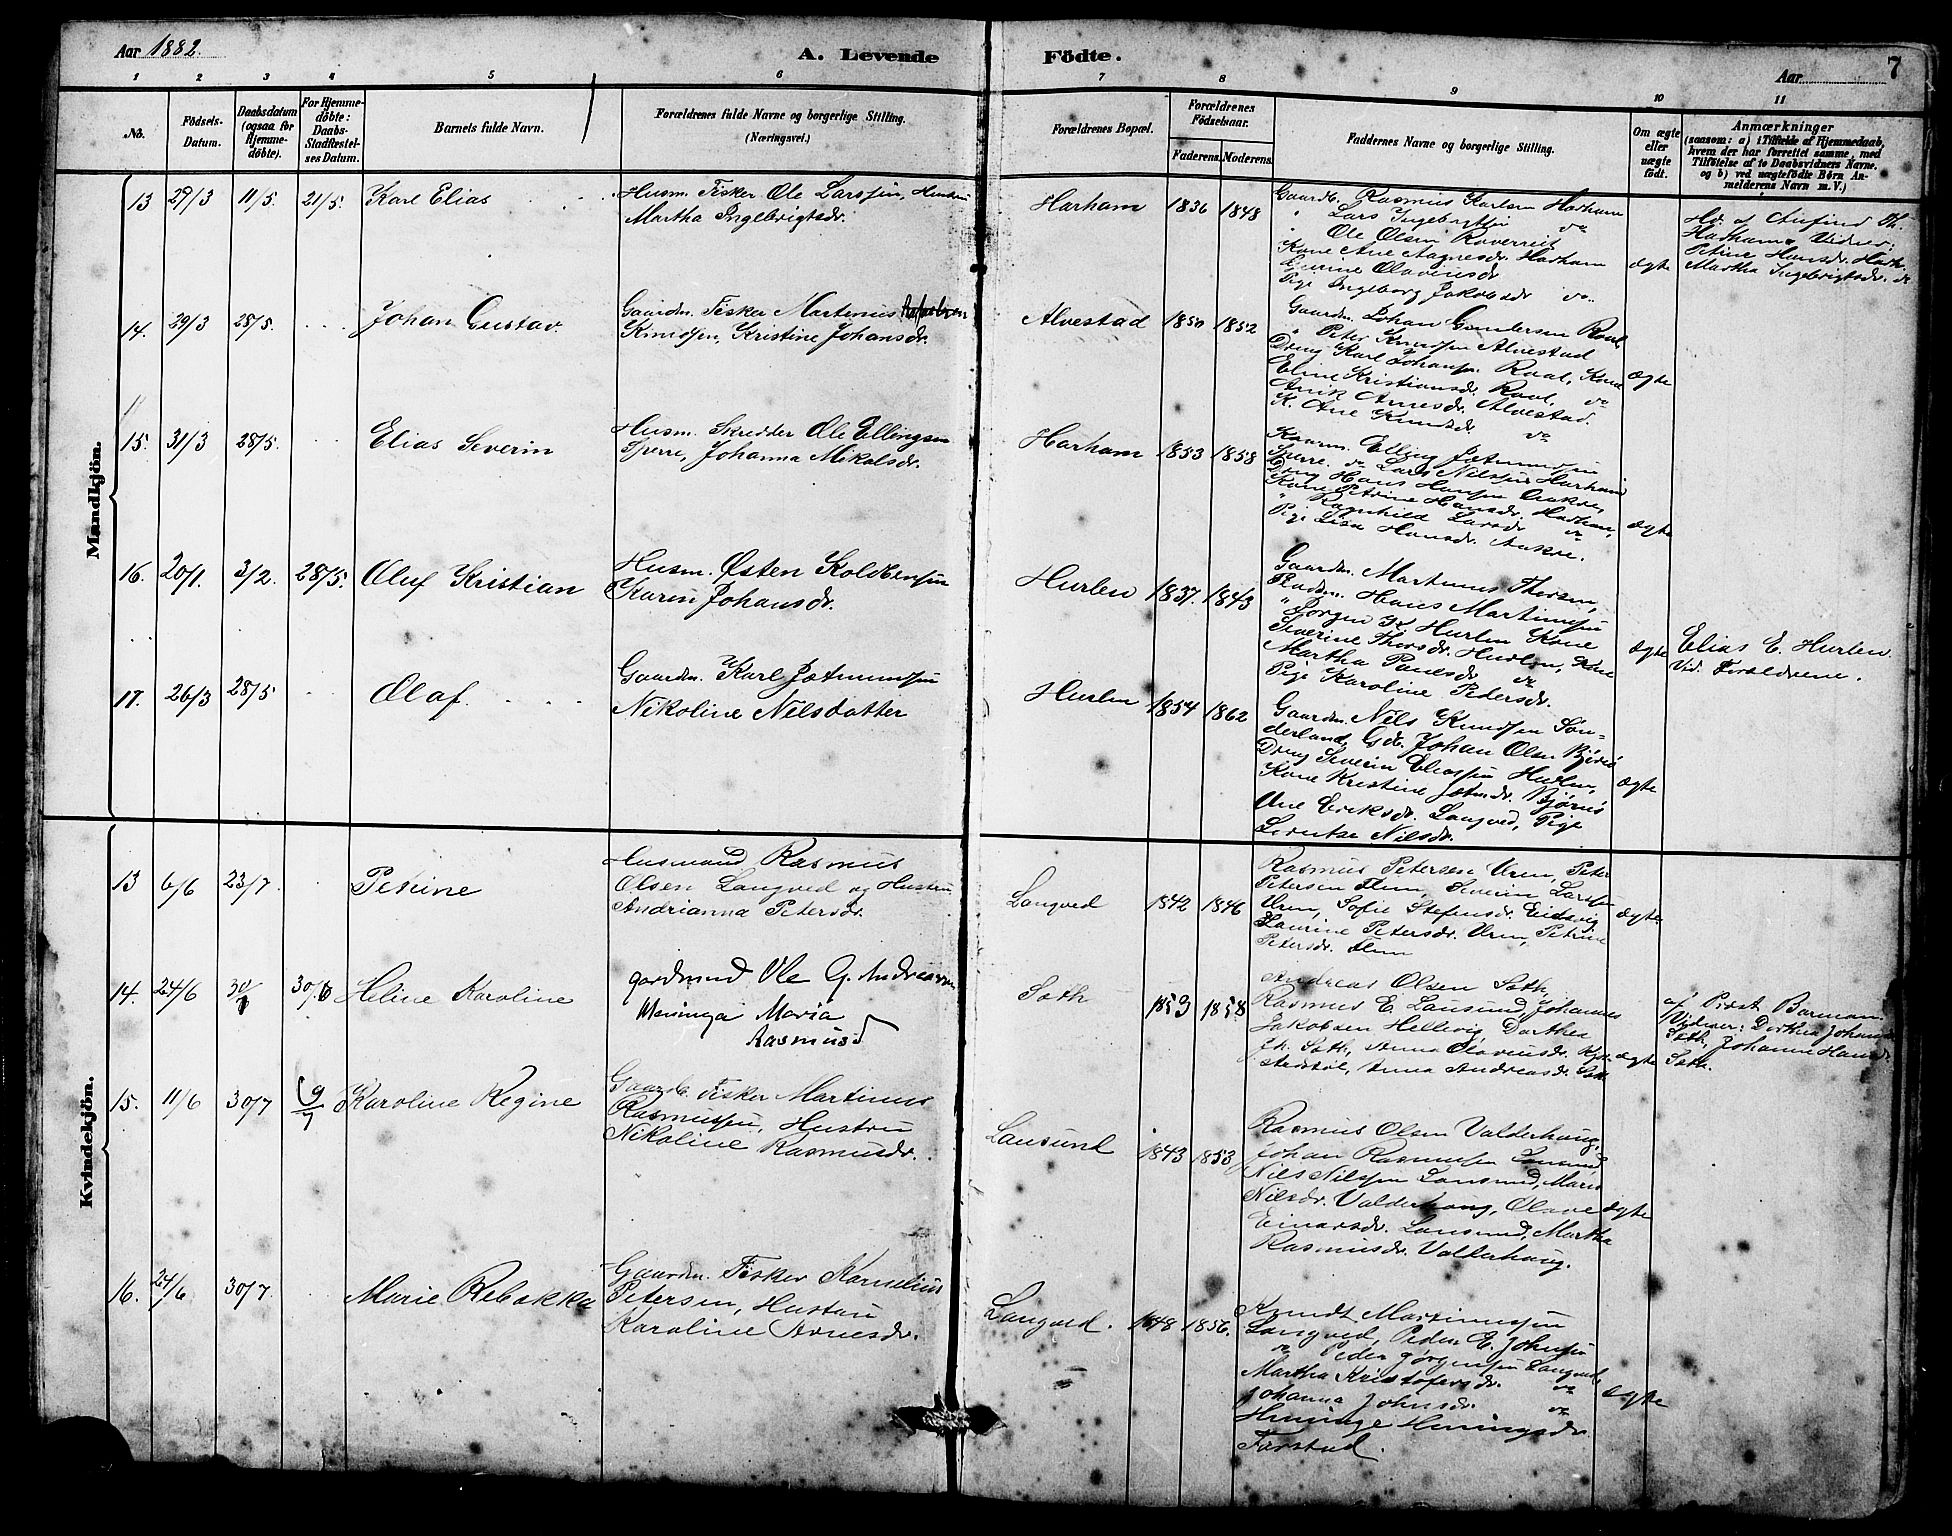 Aar 1882.
A. Levende Födte.
Aar 7
1 2 3 4 5 6 7 8 9 10 11
No.
Födsels-Datum.
Daabsdatum (ogsaa for Hjemme-döbte).
For Hjemme-döbte: Daabs-Stadfæstel-ses Datum.
Barnets fulde Navn.
Forældrenes fulde Navne og borgerlige Stilling. (Næringsvei.)
Forældrenes Bopæl.
Forældrenes Födselsaar.
Faderens. Moderens.
Faddernes Navne og borgerlige Stilling.
Om ægte eller uægte födt.
Anmærkninger
(saasom: a) i Tilfælde af Hjemmedaab, hvem der har forrettet samme, med Tilföielse af to Daabsvidners Navne, og b) ved uægtefödte Börn An-melderens Navn m. V.)
Mandkjön.
13 29/3 11/5. 21/5. Karl Elias
Husm. Fisker Ole Larssen, Hustru
Martha Ingebrigtsdr.
Harham 1836 1848
Gaardb. Rasmus Karlsen Harham
" Lars Ingebrigtsen do
" Ole Olsen
Kone Ane Aagesdr. Harham
Olavinesdr
Pige Ingeborg Jakobsdr do.
ægte
Harham. Vidner:
Petrine Hansdr. Harh.
Martha Ingebrigtsdr. do
14. 29/3 28/5. Johan Gustav.
Gaardm. Fisker Martenus
Knudsen, Kristine Johansdr.
Alvestad 1850 1852
Gaardm. Johan Gundersen Roal,
" Peter Knudsen Alvestad
Dreng Karl Johansen Roal, Kone
Eline Kristiansdr. Roal, do
Anesdr. Alvestad.
K. Ane Knudsdr do
ægte
15. 31/3 28/5. Elias Severin
Husm. Skredder Ole Ellingsen
Sperre, Johanna Mikalsdr.
Harham 1853 1858
Elling
Sperre. do Lars Nilsen Harham
Dreng Hans Hansen
Kone Petrine Hansdr. Harham,
" Ragnhild Larsdr do
Pige Lisa Hansdr.
ægte
16. 20/1. 3/2. 28/5. Oluf Kristian
Husm. Østen Koldbensen
Karen Johansdr.
Hurlen 1837. 1843
Gaardm. Martinus Thersen,
Hans Martinusen
" Jørgen K Hurlen Kone
Severine Thersdr. Hurlen, Kone
Martha do
Pige Karoline Pedersdr.
ægte
Elias E. Hurlen.
Vid. Forældrene.
17. 26/3 28/5 Olaf.
Gaardm. Karl Jetmundsen
Nikoline Nilsdatter
Hurlen 1854 1862
Gaardm. Nils Knudsen Søn-
derland, Gdb. Johan Olsen Bjørnø
Dreng Severin Eliassen Hurlen,
Kone Kristine Jetmdr. Bjørnø
Ane Eriksdr. Langved, Pige
Lorentse Nilsdr.
ægte
Kvindekjön.
13 6/6 23/7 Petrine
Husmand Rasmus
Olsen Langved og Hustru
Andrianna Petersdr.
Langved 1842 1846
Rasmus Petersen Uren, Peter
Petersen Flem, Severin Larssen
Uren, Sofie Stefensdr. Eidsvig
Laurine Petersdr. Uren, Petrine
Petersdr. Flem
ægte
14. 24/6 30/7 30/6 Heline Karoline
gardmand Ole G. Andreassen
Maria
Rasmusd
Søth 1853 1858
Andreas Olsen Søth,
Rasmus E. Lausund, Johannes
Jakobsen Hellevig, Dorthea
Søth, Anna Olaviusdr.
Anna Andreasdr. Søth
ægte
af Præst Barman
Vidner: Dorthea Johansdr
Søth, Johanne Hansdr.
Søth.
15. 11/6 30/7 9/7 Karoline Regine
Gaardb. Fisker Martinus
Rasmussen, Hustru
Nikoline Rasmusdr.
Lausund 1843 1853
Rasmus Olsen Valderhaug,
Johan Rasmussen Lausund
Nils Nilssen Lausund, Maria
Nilsdr. Valderhaug, Olave
Einarsdr. Lausund, Martha
Rasmusdr. Valderhaug.
ægte
16. 24/6 30/7. Marie Rebekka
Gaardm. Fisker Kornelius
Petersen, Hustru
Karoline Arnesdr.
Langved. 1848 1856.
Knudt Martinussen
Langved, Peder E. Johnsen
do Peder Jørgensen Langved,
Martha Kristofersdr. do
Johanna Johnsdr. do
Heninge Heningsdr.
Farstad.
ægte